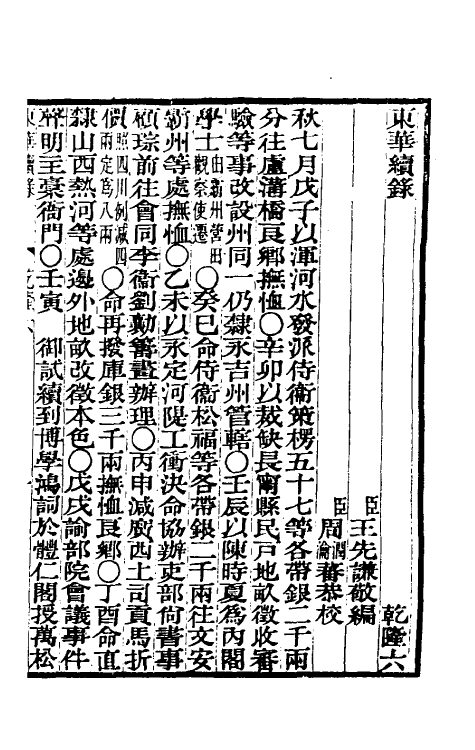 東華續錄　乾隆六
臣王先謙敬編
臣周潤蕃周瀹蕃恭校
秋七月戊子以渾河水發派侍衞策楞五十七等各帶銀二千兩
分往盧溝橋良鄉撫恤〇辛卯以裁缺長甯縣民戸地畝徵收審
驗等事改設州同一仍隸永吉州管轄〇壬辰以陳時夏爲內閣
學士由新州營田觀察使遷〇癸巳命侍衞松福等各帶銀二千兩往文安
霸州等處撫恤〇乙未以永定河隄工衝決命協辦吏部尙書事
顧琮前往會同李衞劉勷籌畫辦理〇丙申減廣西土司貢馬折
價照四川例減四兩定爲八兩〇命再撥庫銀三千兩撫恤良鄉〇丁酉命直
隸山西熱河等處邊外地畝改徵本色〇戊戌諭部院會議事件
辭明主稾衙門〇壬寅　御試續到博學鴻詞於體仁閣授萬松